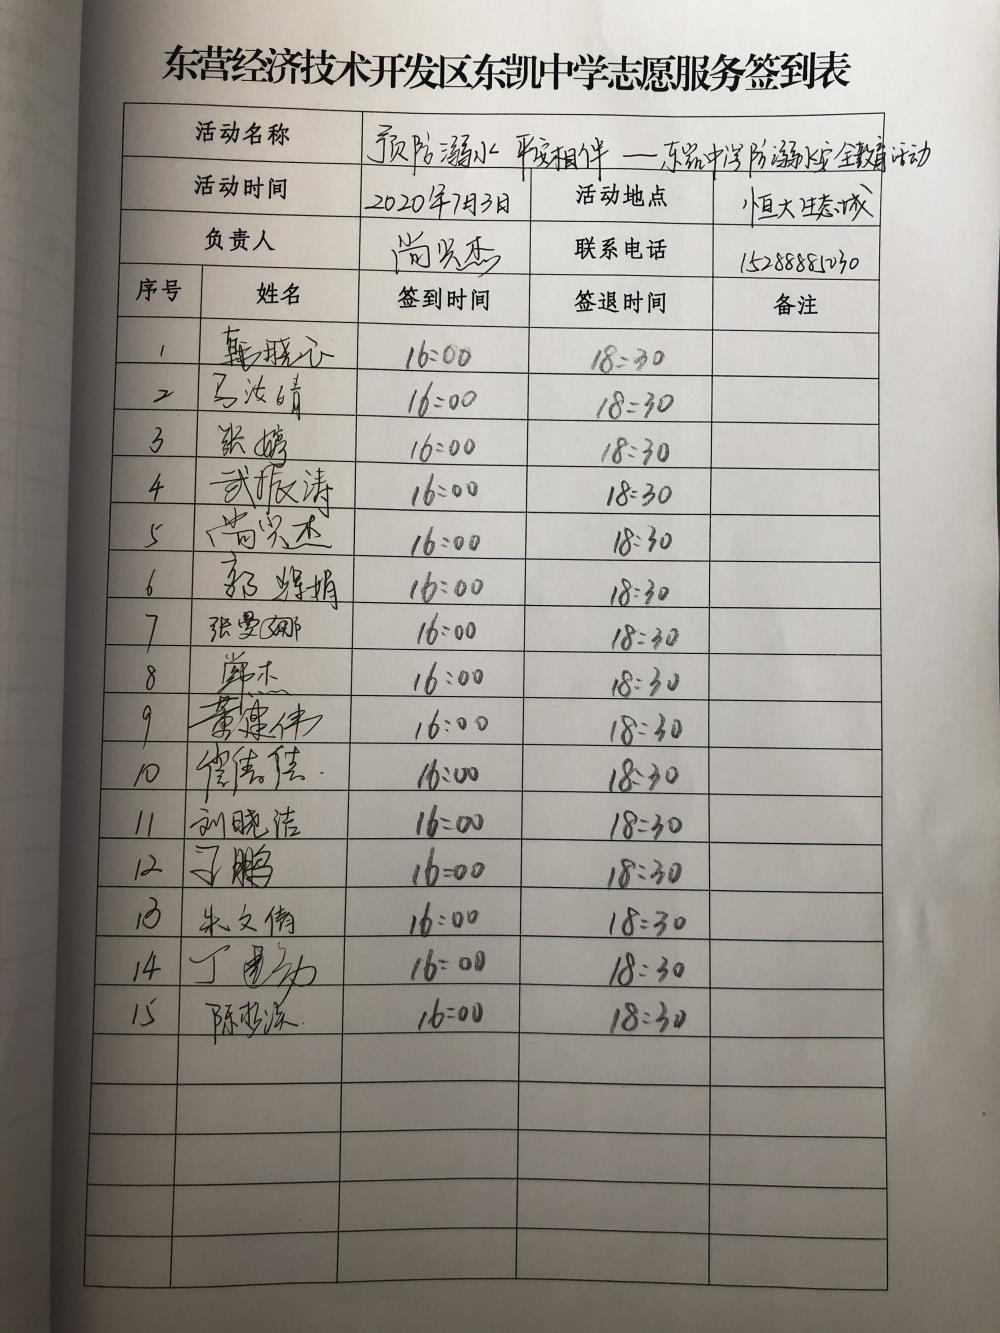 东营经济技术开发区东凯中学志愿服务签到表
活动名称 预防溺水 平安相伴 —东凯中学防溺水安全教育活动
活动时间 2020年7月3日 活动地点 恒大生态城
负责人 尚兴杰 联系电话 15288885030
序号 姓名 签到时间 签退时间 备注
1 韩晓 16:00 18:30
2 马汝晴 16:00 18:30
3 张婷 16:00 18:30
4 武振涛 16:00 18:30
5 尚兴杰 16:00 18:30
6 郭辉娟 16:00 18:30
7 张曼娜 16:00 18:30
8 16:00 18:30
9 董建伟 16:00 18:30
10 倩倩 16:00 18:30
11 刘晓洁 16:00 18:30
12 于鹏 16:00 18:30
13 朱文倩 16:00 18:30
14 丁 16:00 18:30
15 陈梦 16:00 18:30